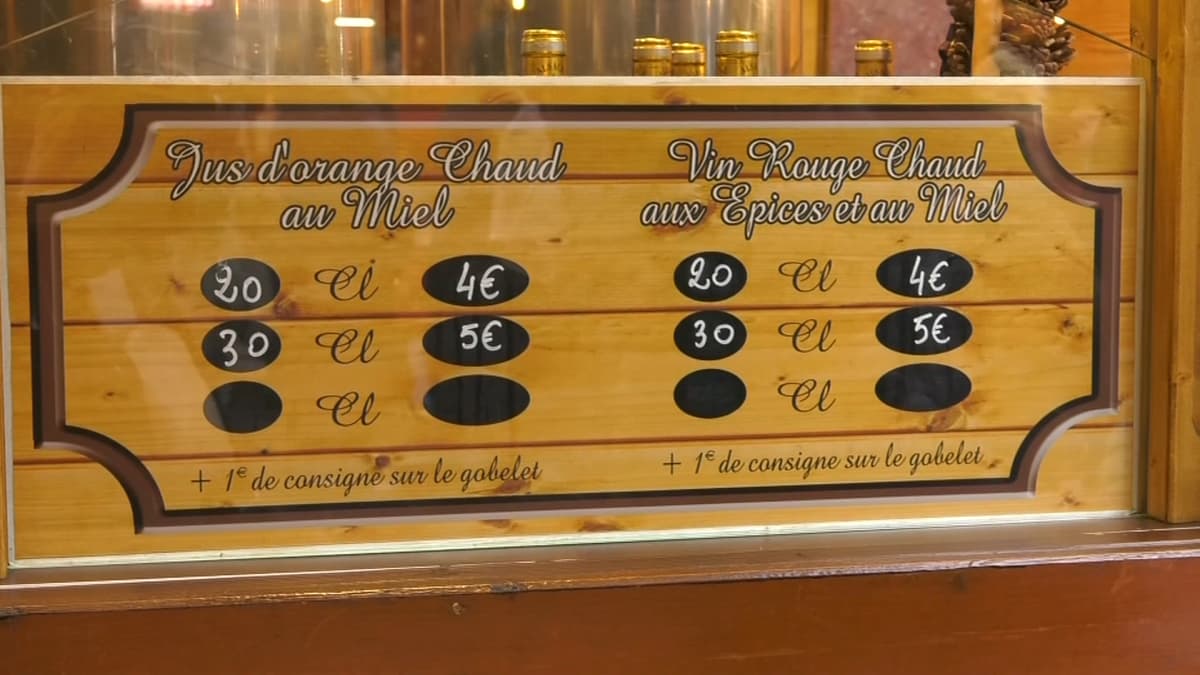 Jus d'orange Chaud
au Miel
20 Cl 4€
30 Cl 5€
Cl
+ 1€ de consigne sur le gobelet
Vin Rouge Chaud
aux Epices et au Miel
20 Cl 4€
30 Cl 5€
Cl
+ 1€ de consigne sur le gobelet